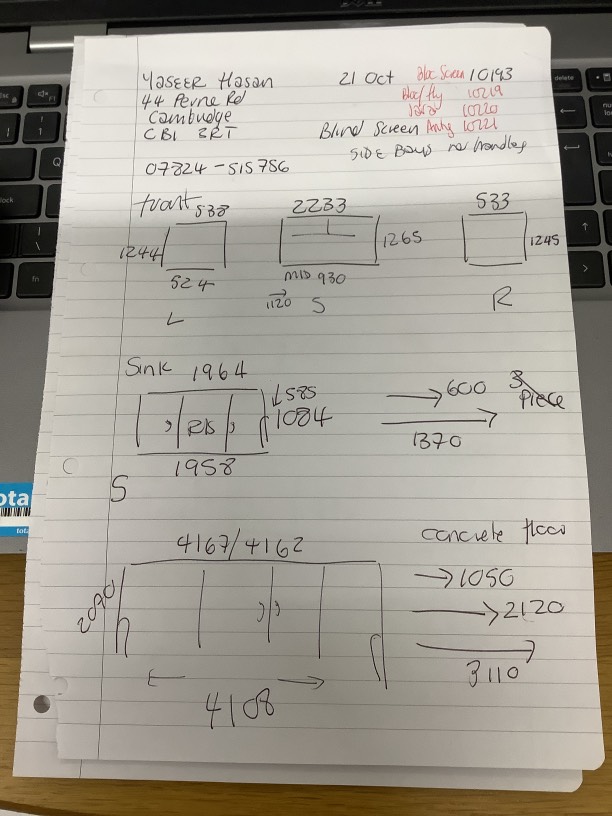 Yaseer Hasan 21 Oct Bloc Screen 10193
44 Perne Rd Bloc fly 10219
Cambridge 10220
CB1 3RT Blind Screen 10221
SIDE Bays no handles
07824-515756
front 538 2233 533
1244 1265 1245
524 MID 930
1120 S R
L
Sink 1964
↓585 →600 3 Piece
1084
1370
1958
S
4167/4162 concrete floor
→1050
2090 →2120
3110
4108